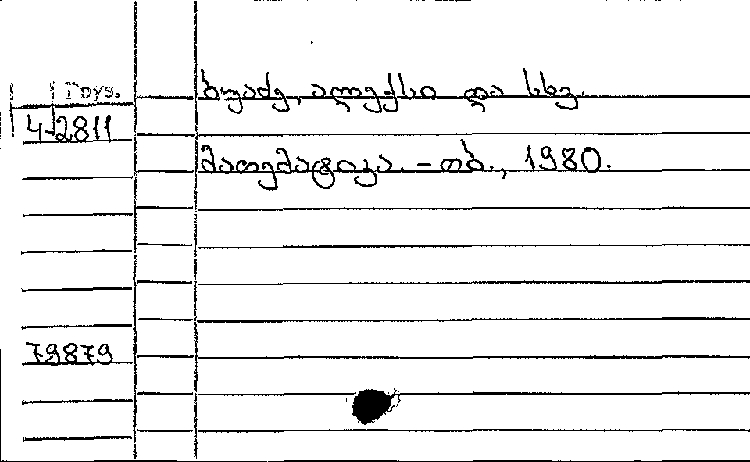 Груз.
ბუაძე, ალექსი და სხვ.
4-2811
მათემატიკა. – თბ., 1980.
79879